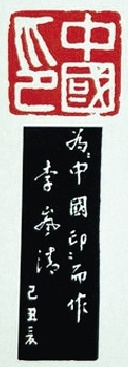 中國
印
為"中國印"而作
李嵐清
己丑